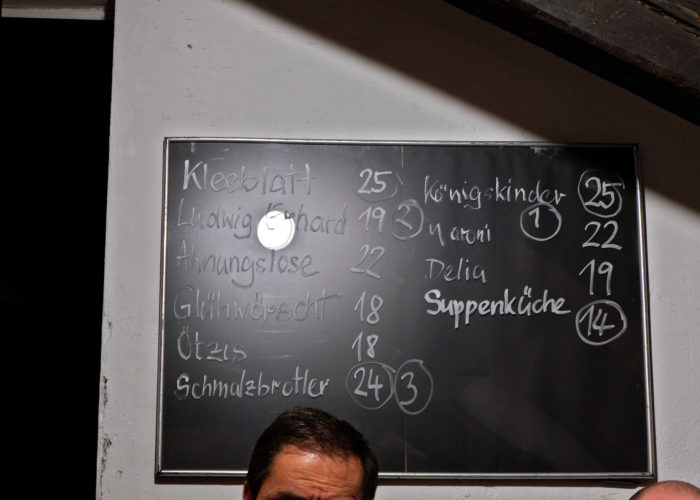 Kleeblatt 25
Ludwig Erhard 19 2
Ahnungslose 22
Glühwörscht 18
Ötzis 18
Schmalzbrotler 24 3
Königskinder 1 25
Maroni 22
Delia 19
Suppenküche 14